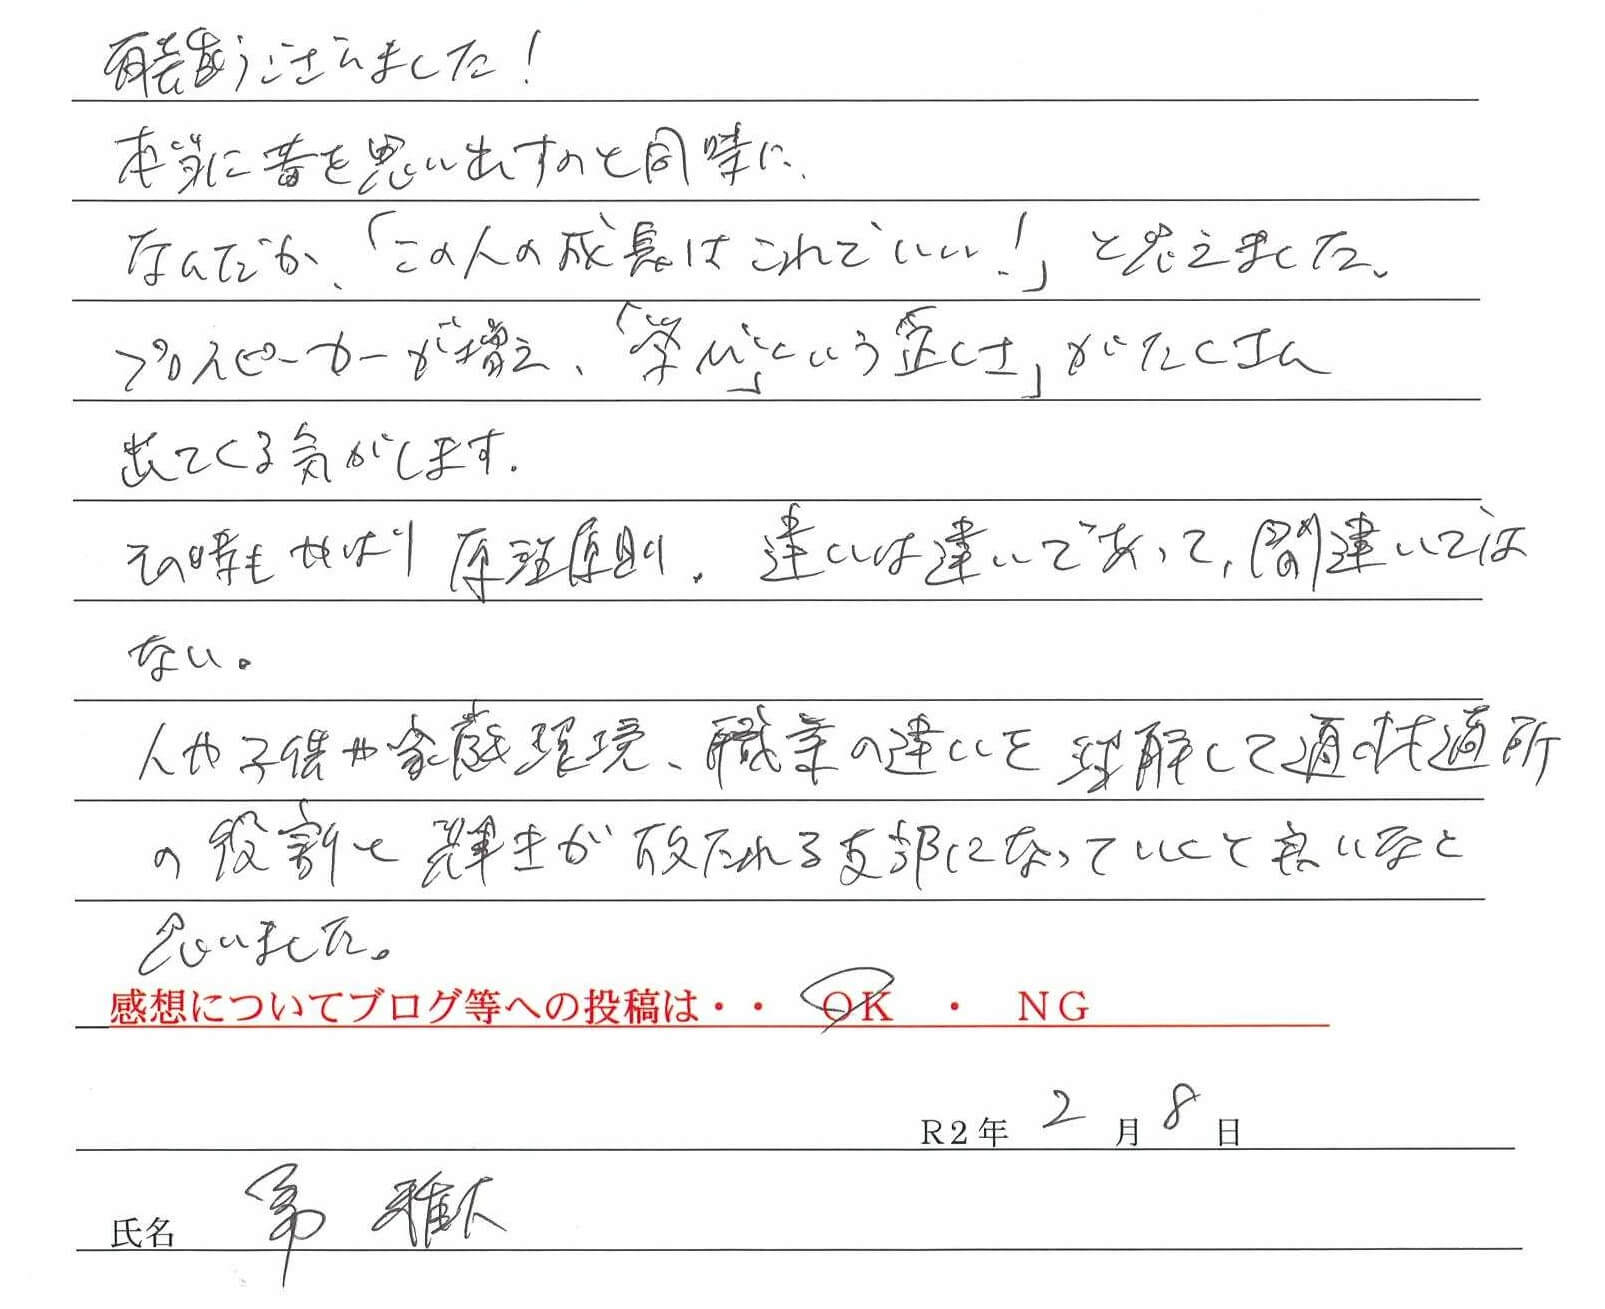 有難うございました!
本当に昔を思い出すのと同時に、
なんだか、「この人の成長はこれでいい!」と思えました。
プロスピーカーが増え、「学び」という歪しさ」がたくさん
出てくる気がします。
その時もやはり原理原則。違いは違いであって、間違いでは
ない。
人や子供や家庭環境、職業の違いを理解して適材適所
の役割と 生が放たれる支部になっていくと良いなと
思いました。
感想についてブログ等への投稿は・・ OK ・ NG
R2年 2月 8日
氏名 雅大